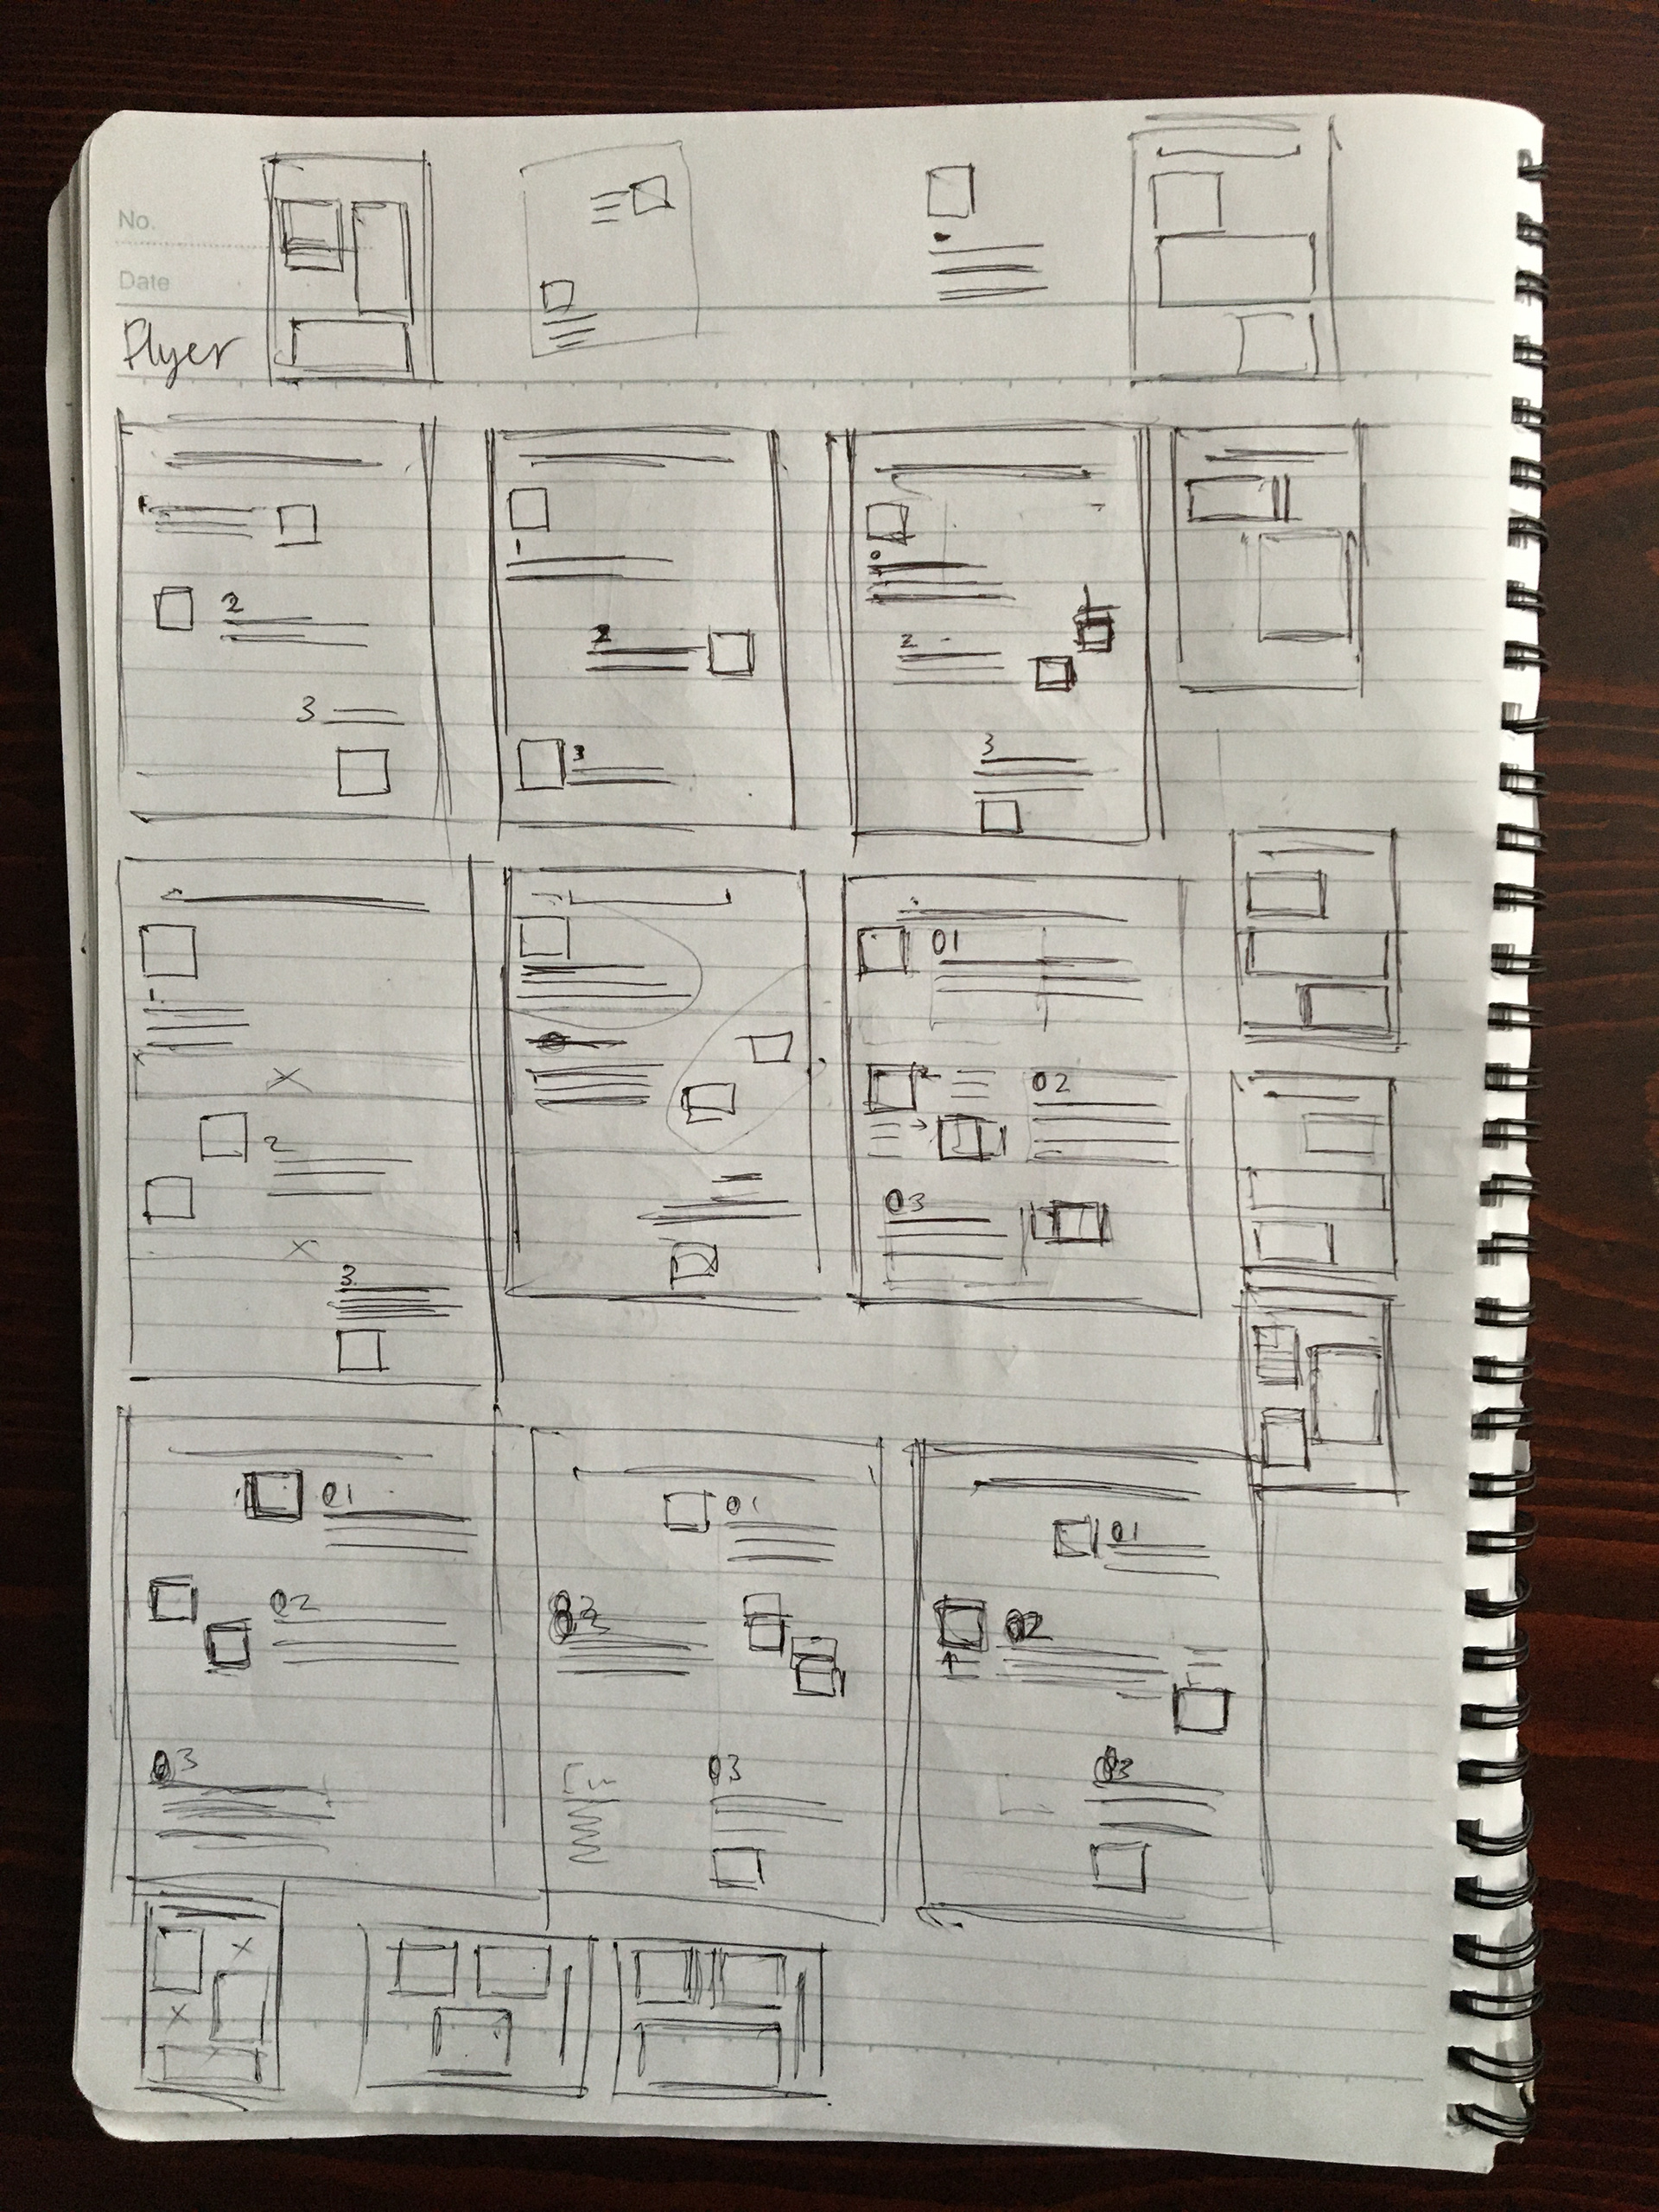 No.
Date
Flyer
2
3
1
2
3
2
3
2
3
01
2
02
03
01
02
03
01
03
01
02
03